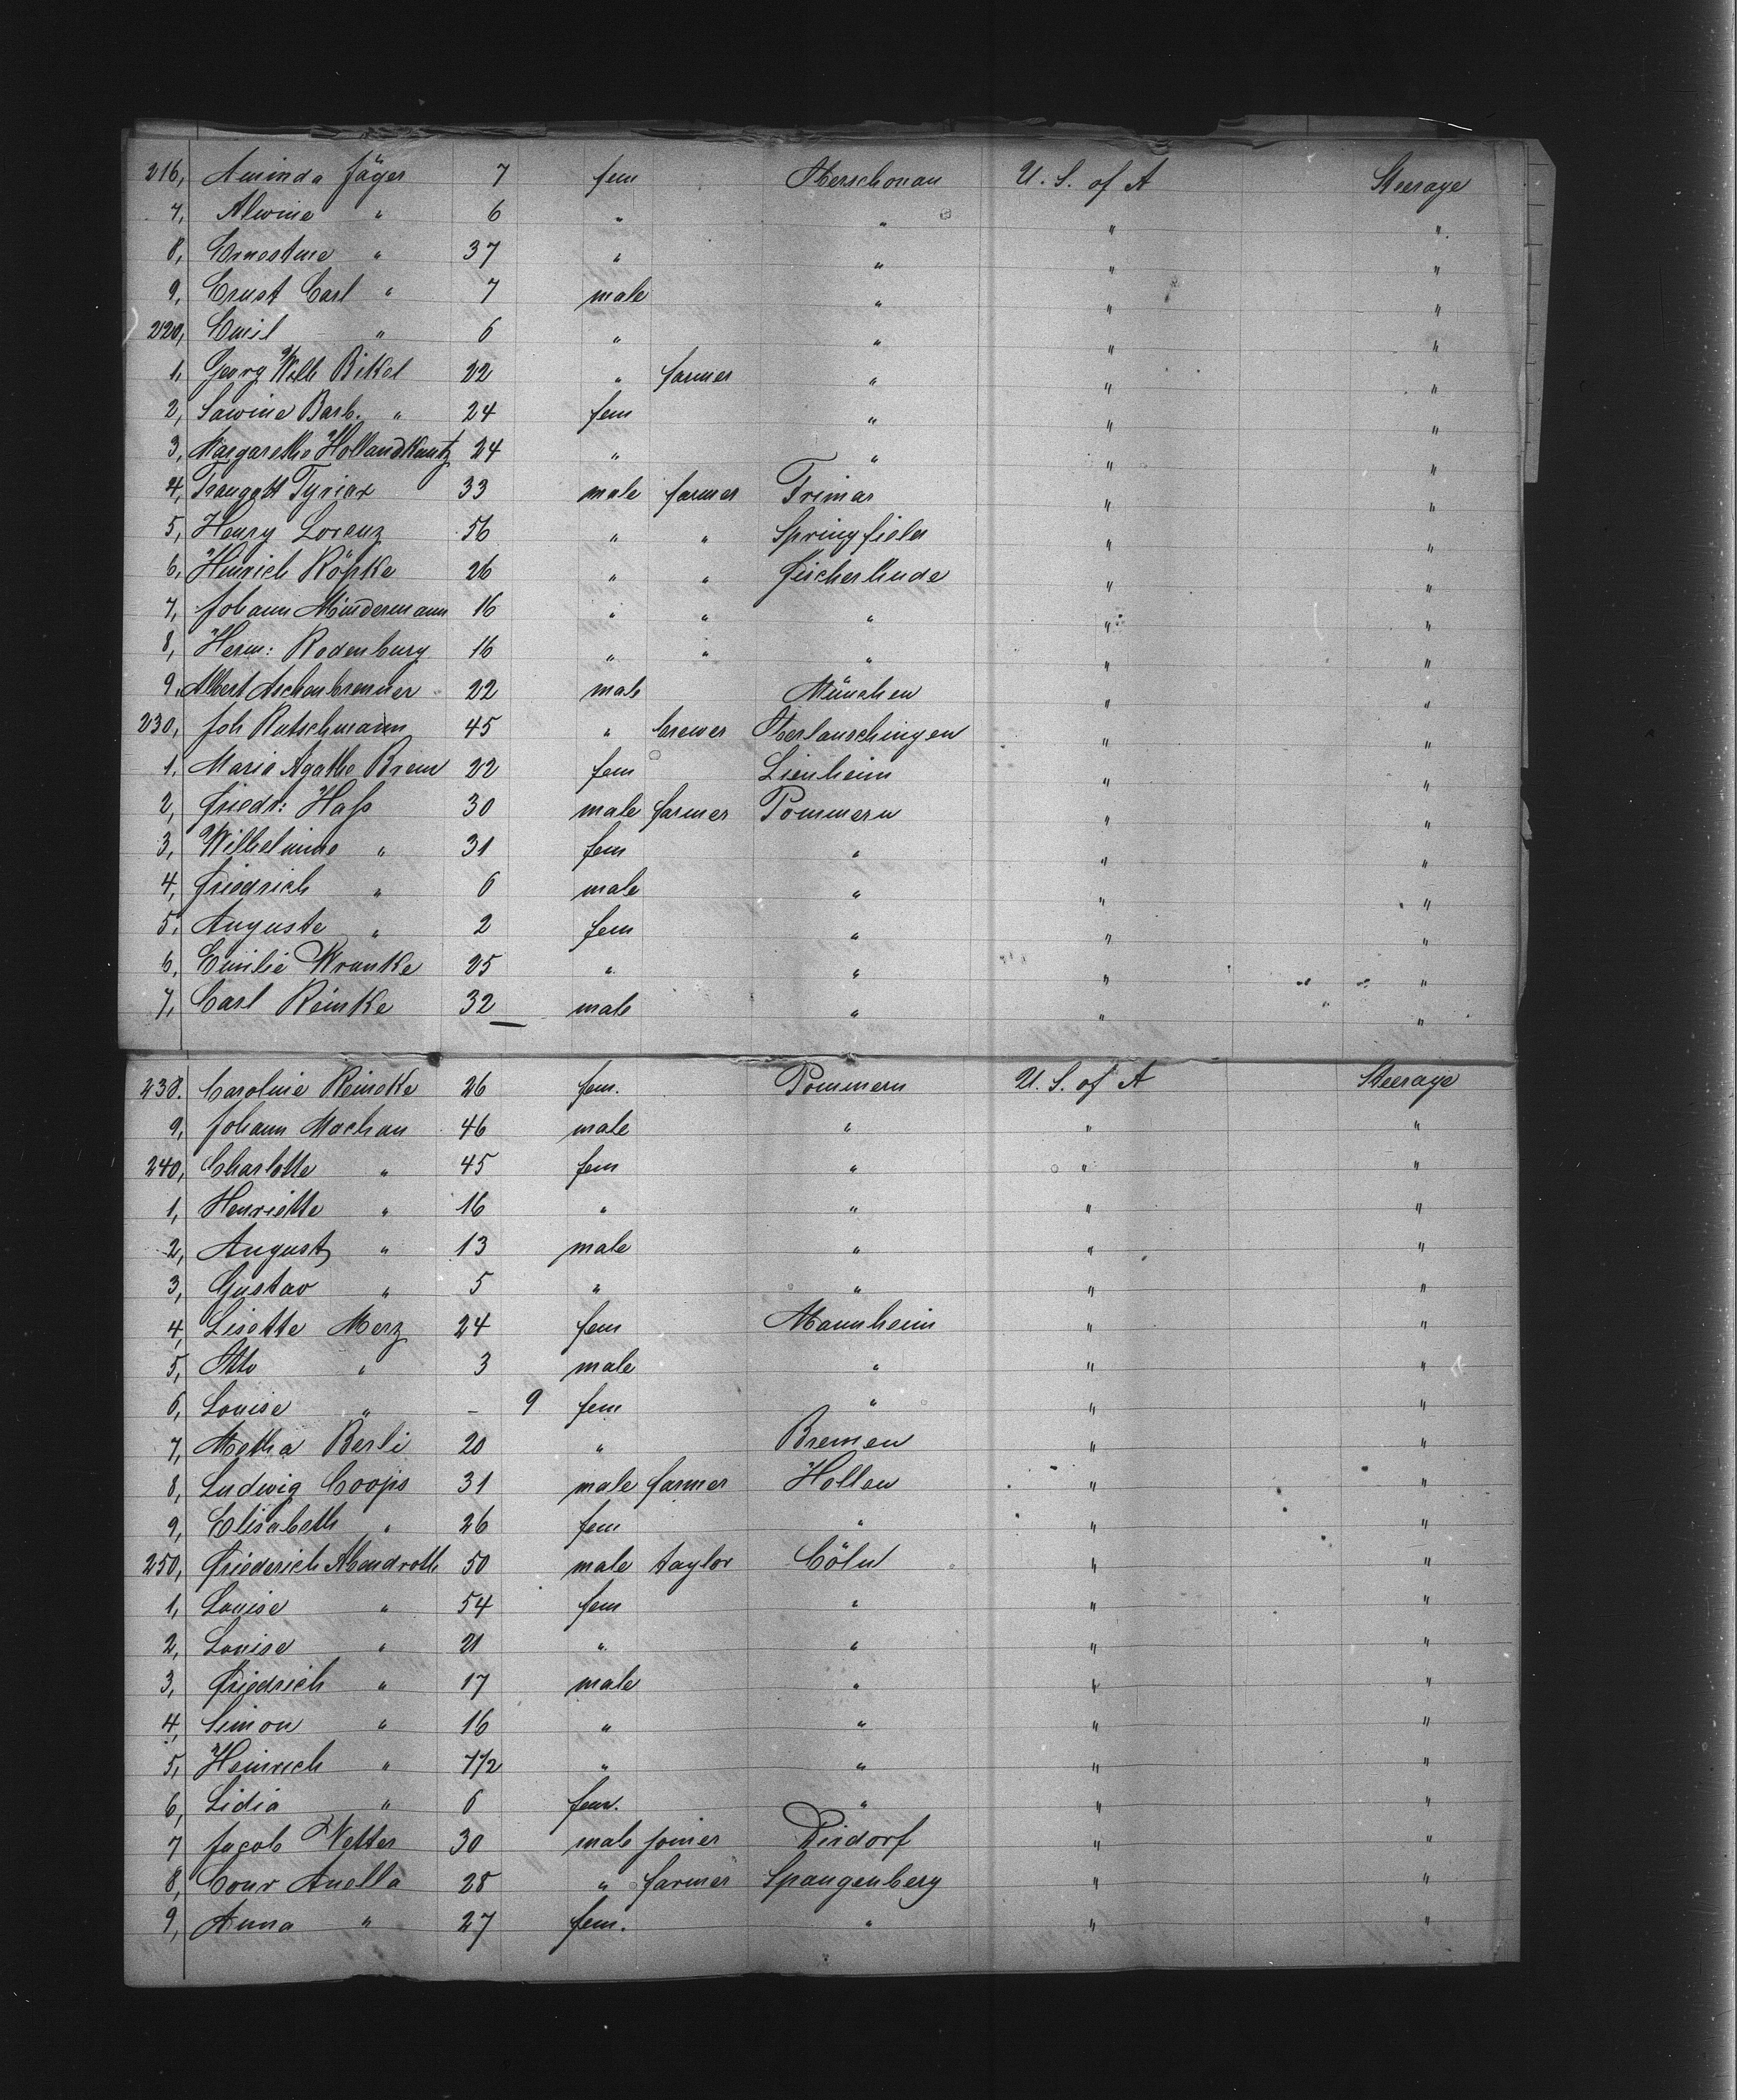 216, Aminda Jäger 7 fem Oberschonau U. S. of A Steerage
7, Alwine " 6 " " " "
8, Ernestine " 37 " " " "
9, Ernst Carl " 7 male " " "
220, Emil " 6 " " " "
1, Georg Wilh Bikel 22 " farmer " " "
2, Sawine Barb. " 24 fem " " "
3, Margarethe Hollandkuntz 24 " " " "
4, Traugott Tyriax 33 male farmer Frimar " "
5, Henry Lorenz 56 " " Springfield " "
6, Heinrich Röpke 26 " " Fischerhude " "
7, Johann Mindermann 16 " " " " "
8, Herm: Rodenburg 16 " " " " "
9, Albert Aschenbrenner 22 male München " "
230, Joh Rutschmann 45 " brewer Oberlauschingen " "
1, Maria Agathe Brem 22 fem Lienheim " "
2, Friedr: Haß 30 male farmer Pommern " "
3, Wilhelmine " 31 fem " " "
4, Friedrich " 6 male " " "
5, Auguste " 2 fem " " "
6, Emilie Wranke 25 " " " "
7, Carl Reinke 32 male " " "
238. Caroline Reincke 26 fem. Pommern U. S. of A Steerage
9, Johann Machau 46 male " " "
240, Charlotte " 45 fem " " "
1, Henriette " 16 " " " "
2, August " 13 male " " "
3, Gustav " 5 " " " "
4, Lisette Merz 24 fem Mannheim " "
5, Otto " 3 male " " "
6, Louise " - 9 fem " " "
7, Metha Berli 20 " Bremen " "
8, Ludwig Coops 31 male farmer Hollen " "
9, Elisabeth " 26 fem " " "
250, Friederich Abendroth 50 male taylor Cöln " "
1, Louise " 54 fem " " "
2, Louise " 21 " " " "
3, Friedrich " 17 male " " "
4, Simon " 16 " " " "
5, Heinrich " 7 1/2 " " " "
6, Lidia " 6 fem. " " "
7 Jacob Vetter 30 male joiner Dirdorf " "
8, Conr Anella 28 " farmer Spangenberg " "
9, Anna " 27 fem. " " "